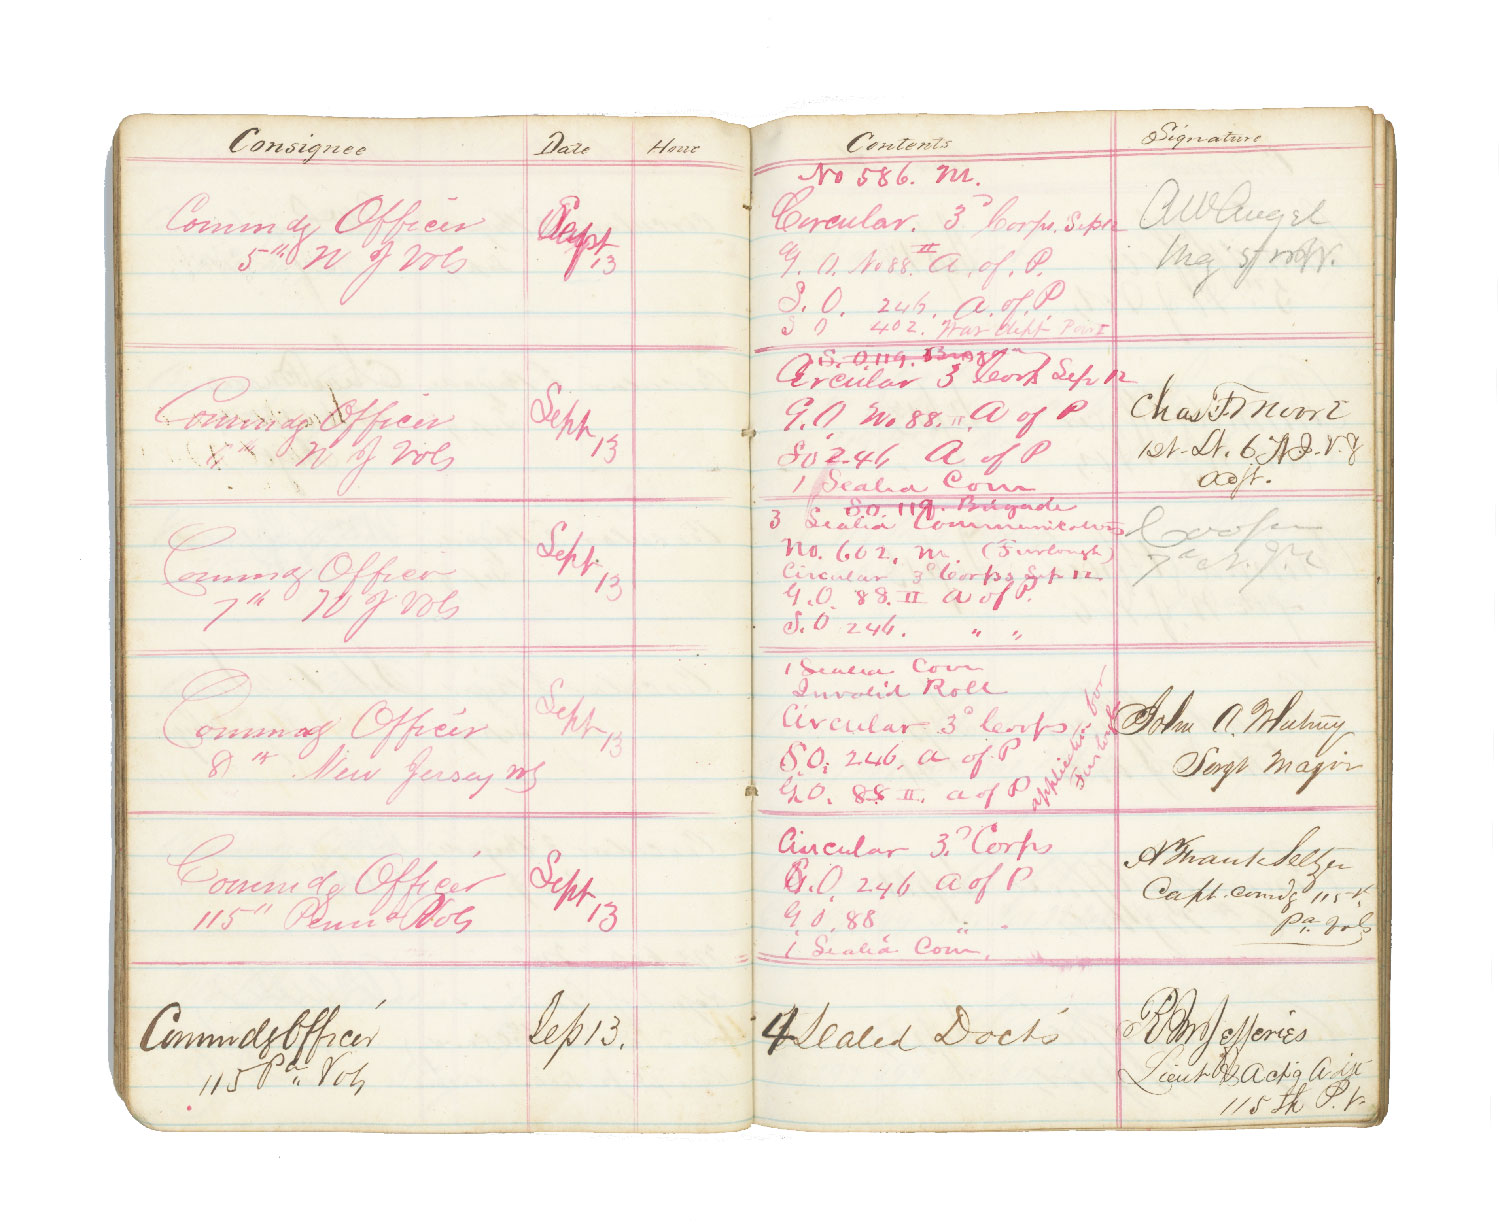 Consignee Date Hour Contents Signature
No 586. M.
Commdg Officer Sept 13 Circular. 3d Corps. Sept 12
5th N J Vols G. O. No 88. II A. of. P.
S. O. 246. A. of. P.
S O 402. War dept.
Maj 5th
S. O. 119. Brigade
Commdg Officer Sept 13 Circular 3d Corps Sep 12 Chas F. Moore
N J Vols G. O. No 88. II. A of P 1st Lt. 6 N.J.V. &
S O 246 A of P Adjt.
1 Sealed Com
S.O. 119. Brigade
3 Sealed Communications
Commdg Officer Sept 13 No. 602. M. (Furlough) Cooper
7th N J Vols Circular 3d Corps Sep 12 7th N.J.V.
G. O. 88. II A of P.
S. O 246. " "
1 Sealed Com
Invalid Roll
Commdg Officer Sept 13 Circular 3d Corps John A. Whitney
8th New Jersey Vols S O. 246. A of P Sergt Major
G O. 88 II. A of P
application for
Furlough
Commdg Officer Sept 13 Circular 3d Corps A Frank Seltzer
115" Penna Vols S. O 246 A of P Capt. Comdg 115th
G O. 88 " Pa. Vols
1 Sealed Com.
Commdg Officer Sep 13. 4 Sealed Doct's R M Jefferies
115 Pa. Vols Lieut & Actg Adjt
115th P. V.